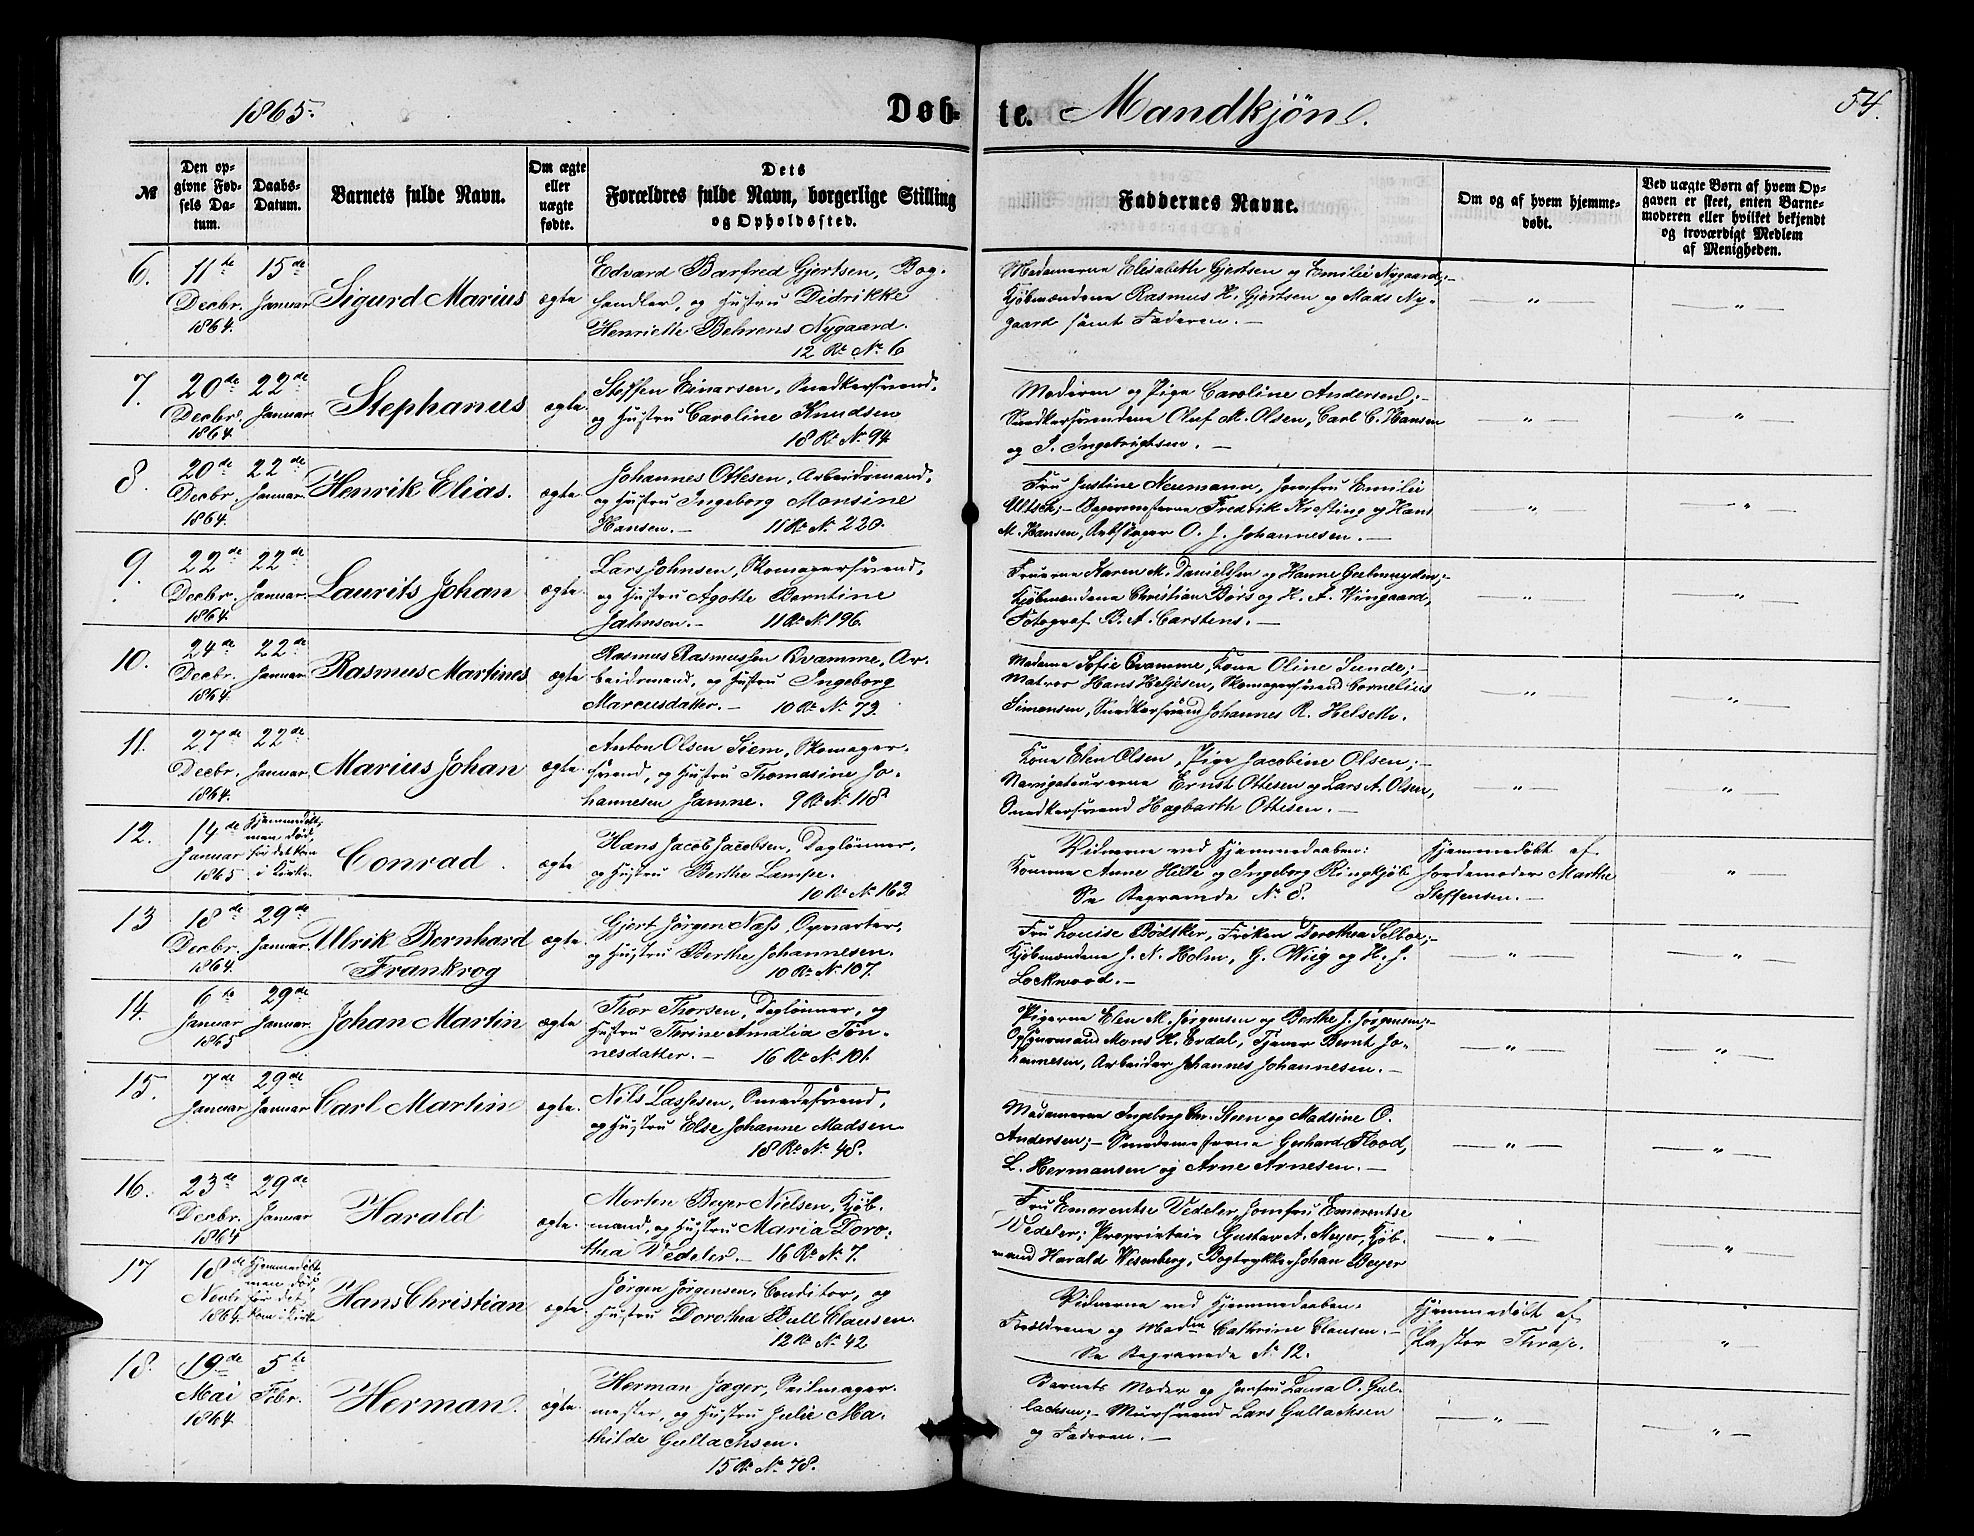 1865.
Døb-te. Mandkjøn.
54.
№
Den op-
givne Fød-
sels Da-
tum.
Daabs-
Datum.
Barnets fulde Navn.
Om ægte
eller
uægte
fødte.
Dets
Forældres fulde Navn, borgerlige Stilling
og Opholdssted.
Faddernes Navne.
Om og af hvem hjemme-
døbt.
Ved uægte Børn af hvem Op-
gaven er skeet, enten Barne-
moderen eller hvilket bekjendt
og troværdigt Medlem
af Menigheden.
6.
11te
Decbr.
1864.
15de
Januar
Sigurd Marius
ægte
Edvard Barfred Gjertsen, Bog-
handler, og Hustru Didrikke
Henriette Behrens Nygaard.
12 R. No. 6
Madamerne Elisabeth Gjertsen og Emilie Nygaard;-
Kjøbmændene Rasmus H. Gjertsen og Mads Ny-
gaard samt Faderen. —
— " —
— " —
7.
20de
Decbr.
1864.
22de
Januar
Stephanus
ægte.
Steffen Einarsen, Snedkersvend,
og Hustru Caroline Knudsen
18 R. No. 94
Moderen og Pige Caroline Andersen;-
Snedkersvendene Oluf M. Olsen, Carl C. Hansen
og I. Ingebrigtsen. —
— " —
— " —
8.
20de
Decbr.
1864.
22de
Januar.
Henrik Elias.
ægte
Johannes Ottesen, Arbeidsmand,
og Hustru Ingeborg Monsine
Hansen. — 11 R. N. 220.
Fru Justine Neumann, Jomfru Emilie
Ulisen;- Bagermesterne Fredrik Kresting og Hans
M. Hansen, Rebslager O. J. Johannesen. —
— " —
— " —
9.
22de
Decbr.
1864
22de
Januar.
Laurits Johan
ægte.
Lars Johnsen, Skomagersvend,
og Hustru Agotte Berntine
Jahnsen. — 11 R. N. 196.
Fruerne Karen M. Danielssen og Hanne Geelmuyden;-
Kjøbmændene Christian Børs og H. A. Wingaard,
Fotograf B. A. Carstens. —
— " —
— " —
10.
24de
Decbr.
1864
22de
Januar
Rasmus Martines
ægte
Rasmus Rasmussen Qvamme, Ar-
beidsmand, og Hustru Ingeborg
Marcusdatter. — 10 R. No. 73.
Madame Sofie Qvamme, Kone Oline Sunde;-
Matros Hans Helgesen, Skomagersvend Cornelius
Simonsen, Snedkersvend Johannes R. Helseth.
— " —
— " —
11.
27de
Decbr.
1864.
22de
Januar.
Marius Johan
ægte.
Anton Olsen Siem, Skomager-
svend, og Hustru Thomasine Jo-
hannesen Jamne. 9 R. N. 118
Kone Elen Olsen, Pige Jacobine Olsen;-
Navigateurerne Ernst Ottesen og Lars A. Olsen,
Snedkersvend Hagbarth Ottesen. —
— " —
— " —
12.
14de
Januar
1865
Hjemmedøbt,
men død
før det kom
i Kirke.
Conrad.
ægte
Hans Jacob Jacobsen, Daglønner,
og Hustru Berthe Lampe.
10 R. No. 163.
Vidnerne ved Hjemmedaaben:
Konerne Anne Hille og Ingeborg Ringkjøb.
Se Begravede No. 8.
Hjemmedøbt af
Jordemoder Marthe
Steffensen. —
— " —
13
18de
Decbr.
1864.
29de
Januar
Ulrik Bernhard
Frankrog
ægte.
Gjert Jørgen Næss, Opvarter,
og Hustru Berthe Johannesen.
10 R. No. 107.
Fru Louise Bødtker, Frøken Dorothea Selboe;-
Kjøbmændene J. N. Holm, G. Wiig og H. J.
Lockwood. —
— " —
— " —
14.
6te
Januar
1865
29de
Januar.
Johan Martin
ægte
Thor Thorsen, Daglønner, og
Hustru Thrine Amalia Tøn-
nesdatter. — 16 R. No. 101.
Pigerne Elen M. Jørgensen og Berthe J. Jørgensen;-
Opsynsmand Mons K. Erdal, Tjener Bernt Jo-
hannesen, Arbeider Johannes Johannesen. —
— " —
— " —
15.
7de
Januar
29de
Januar
Carl Martin
ægte.
Nils Lassesen, Smedesvend,
og Hustru Else Johanne Madsen
18 R. No. 48.
Madamerne Ingeborg Chr. Steen og Madsine O.
Andersen;- Smedemesterne Gerhard Flood,
L. Hermansen og Arne Arnesen. —
— " —
— " —
16.
23de
Decbr.
1864
29de
Januar
Harald
ægte.
Morten Beyer Nielsen, Kjøb-
mand, og Hustru Maria Doro-
thea Vedeler. — 16 R. No. 7.
Fru Emerentse Vedeler, Jomfru Emerentse
Vedeler; Proprietair Gustav A. Meyer, Kjøb-
mand Harald Wesenberg, Bogtrykker Johan Beyer
— " —
— " —
17
18de
Novbr
1864.
Hjemmedøbt
men død
før det
kom i Kirke
Hans Christian
ægte.
Jørgen Jørgensen, Conditor, og
Hustru Dorothea Bull Clausen.
12 R. No. 42
Vidnerne ved Hjemmedaaben.
Forældrene og Madme Cathrine Clausen. —
Se Begravede No. 12.
Hjemmedøbt af
Pastor Thrap.
— " —
18.
19de
Mai
1864.
5te
Febr.
Herman.
ægte.
Herman Jæger, Seilmager-
mester, og Hustru Julie Ma-
thilde Gullachsen.
15 R. No. 78.
Barnets Moder og Jomfru Laura O. Gul-
lachsen;- Mursvend Lars Gullachsen
og Faderen. —
— " —
— " —